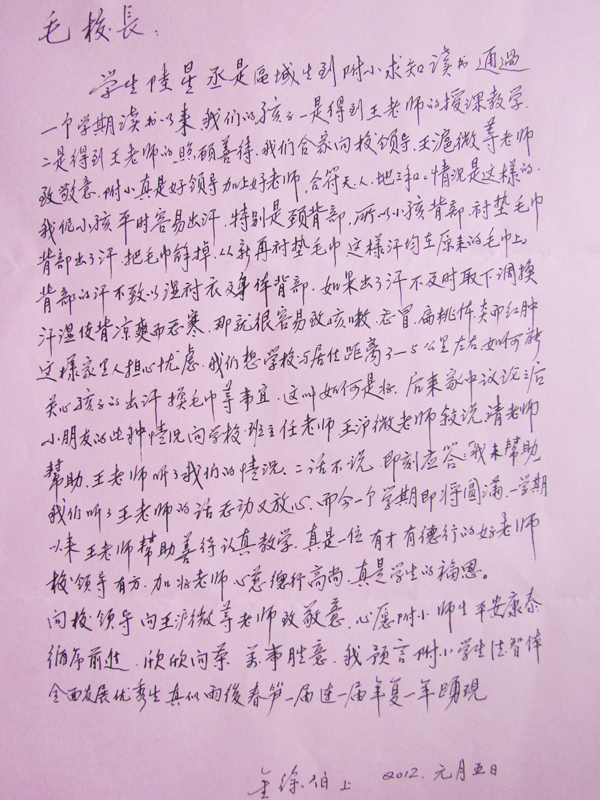 毛校長:
学生陸星丞是區域生到附小求知讀书通過
一个学期读书以来,我们的孩子一是得到王老师的授课教学.
二是得到王老师的照顾善待,我们合家向校领导.王滬微等老师
致敬意.附小真是好领导加上好老师,合符天人.地三和,情况是这样的.
我伲小孩平时容易出汗.特别是頚背部,所以小孩背部,衬垫毛巾
背部出了汗,把毛巾掉,从新再衬垫毛巾这样汗均在原来的毛巾上。
背部的汗不致以湿衬衣及身体背部.如果出了汗不及时取下调换
汗湿使背凉爽而恶寒.那就很容易致咳嗽.忘冒.扁桃体炎而红肿
这様家里人担心忧虑.我们想学校与居住距离3-5公里左右如何能
关心孩子的出汗换毛巾等事宜.这叫如何是好.后来家中议论之后
小朋友的此种情况向学校班主任老师王沪微老师叙说请老师
幫助.王老师听了我们的情况.二话不说.即刻应答:我来幫助
我们听了王老师的话感动又放心.而今一个学期即将圆满.一学期
以来王老师幫助善待认真教学.真是一位有才有德行的好老师
校领导有方.加好老师心慈德行高尚.真是学生的福恩。
向校领导向王沪微等老师致敬意.心愿附小师生平安康泰
循序前进.欣欣向荣.万事胜意.我预言附小学生德智体
全面发展优秀生真似雨後春笋一届连一届年复一年踴現
徐伯上 2012.元月五日